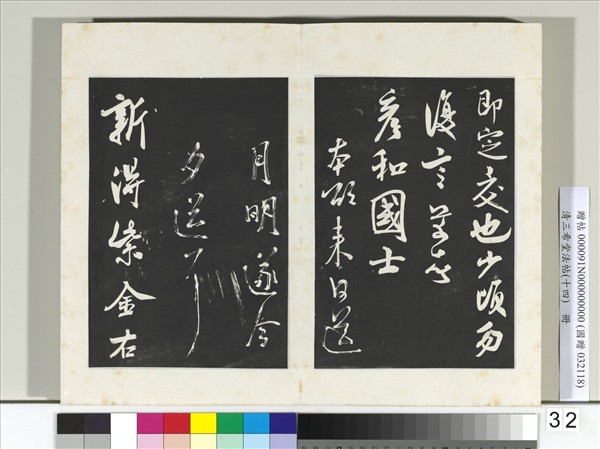 即定交也少頃勿
復言芾頓首
彥和國士
本欲来日送
月明遂今
夕送耳
新得紫金右
贈帖 000091N000000000 (國贈 032118)
清三希堂法帖(十四) 冊
32